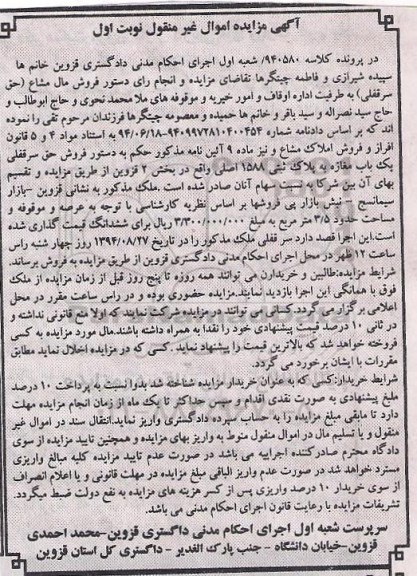 آگهی مزایده اموال غیر منقول نوبت اول
در پرونده کلاسه ۹۴۰۵۸۰/ شعبه اول اجرای احکام مدنی دادگستری قزوین خانم ها
سپیده شیرازی و فاطمه چیتگرها تقاضای مزایده و انجام رای دستور فروش مال مشاع (حق
سرقفلی) به طرفیت اداره اوقاف و امور خیریه و موقوفه های ملا محمد نحوی و حاج ابوطالب و
حاج سید نصراله و سید باقر و خانم ها حمیده و معصومه چیتگرها فرزندان مرحوم تقی را نموده
اند که بر اساس دادنامه شماره ۹۴۰۹۹۷۲۸۱۰۴۰۰۴۵۴-۹۴/۰۶/۱۸ به استناد مواد ۴ و ۵ قانون
افراز و فروش املاک مشاع و نیز ماده ۹ آئین نامه مذکور حکم به دستور فروش حق سرقفلی
یک باب مغازه به پلاک ثبتی ۱۵۸۸ اصلی واقع در بخش ۲ قزوین از طریق مزایده و تقسیم
بهای آن بین شرکا به نسبت سهام آنان صادر شده است .ملک مذکور به نشانی قزوین –بازار
سیمانسج – نبش بازار پی فروشها بر اساس نظریه کارشناسی با توجه به عرصه و موقوفه و
مساحت حدود ۳/۵ متر مربع به مبلغ ۳/۳۰۰/۰۰۰/۰۰۰ ریال برای ششدانگ قیمت گذاری شده
است.این اجرا قصد دارد سر قفلی ملک مذکور را در تاریخ ۱۳۹۴/۰۸/۲۷ روز چهار شنبه راس
ساعت ۱۲ ظهر در محل اجرای احکام مدنی دادگستری قزوین از طریق مزایده به فروش برساند.
شرایط مزایده:طالبین و خریدارن می توانند همه روزه تا پنج روز قبل از زمان مزایده از ملک
فوق با همانگی این اجرا بازدید نمایند.مزایده حضوری بوده و در راس ساعت مقرر در محل
اعلامی برگزار می گردد.کسانی می توانند در مزایده شرکت نمایند که اولا منع قانونی نداشته و
در ثانی ۱۰ درصد قیمت پیشنهادی خود را نقدا به همراه داشته باشند.مال مورد مزایده به کسی
فروخته خواهد شد که بالاترین قیمت را پیشنهاد نماید .کسی که در مزایده اخلال نماید مطابق
مقررات با ایشان برخورد می گردد.
شرایط خریدار:کسی که به عنوان خریدار مزایده شناخته شد بدوا نسبت به پرداخت ۱۰ درصد
مبلغ پیشنهادی به صورت نقدی اقدام و سپس حداکثر تا یک ماه از زمان انجام مزایده مهلت
دارد تا مابقی مبلغ مزایده را به حساب سپرده دادگستری واریز نماید.انتقال سند در اموال غیر
منقول و یا تسلیم مال در اموال منقول منوط به واریز بهای مزایده و همچنین تایید مزایده از سوی
دادگاه محترم صادرکننده اجراییه می باشد در صورت عدم تایید مزایده کلیه مبالغ واریزی
مسترد خواهد شد در صورت عدم واریز الباقی مبلغ مزایده در مهلت قانونی و یا اعلام انصراف
از سوی خریدار ۱۰ درصد واریزی پس از کسر هزینه های مزایده به نفع دولت ضبط میگردد.
تشریفات مزایده با رعایت قانون اجرای احکام مدنی می باشد.
سرپرست شعبه اول اجرای احکام مدنی داگستری قزوین–محمد احمدی
قزوین–خیابان دانشگاه – جنب پارک الغدیر – داگستری کل استان قزوین